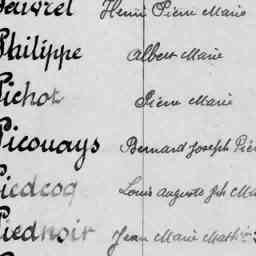 Henri Pierre Marie
Philippe Albert Marie
Pichot Pierre Marie
Picouays Bernard Joseph
Piedcoq Louis Auguste Jph
Piednoir Jean Marie Math